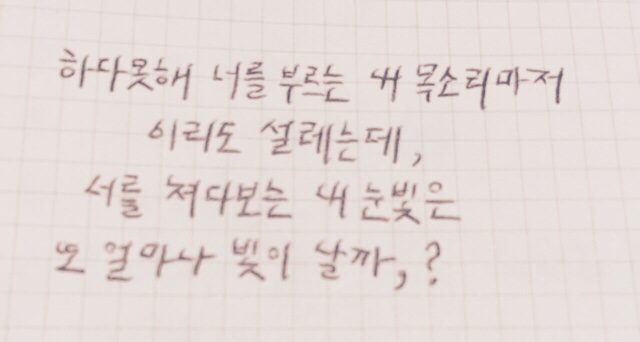 하다못해 너를 부르는 내 목소리마저
이리도 설레는데,
너를 쳐다보는 내 눈빛은
또 얼마나 빛이 날까,?